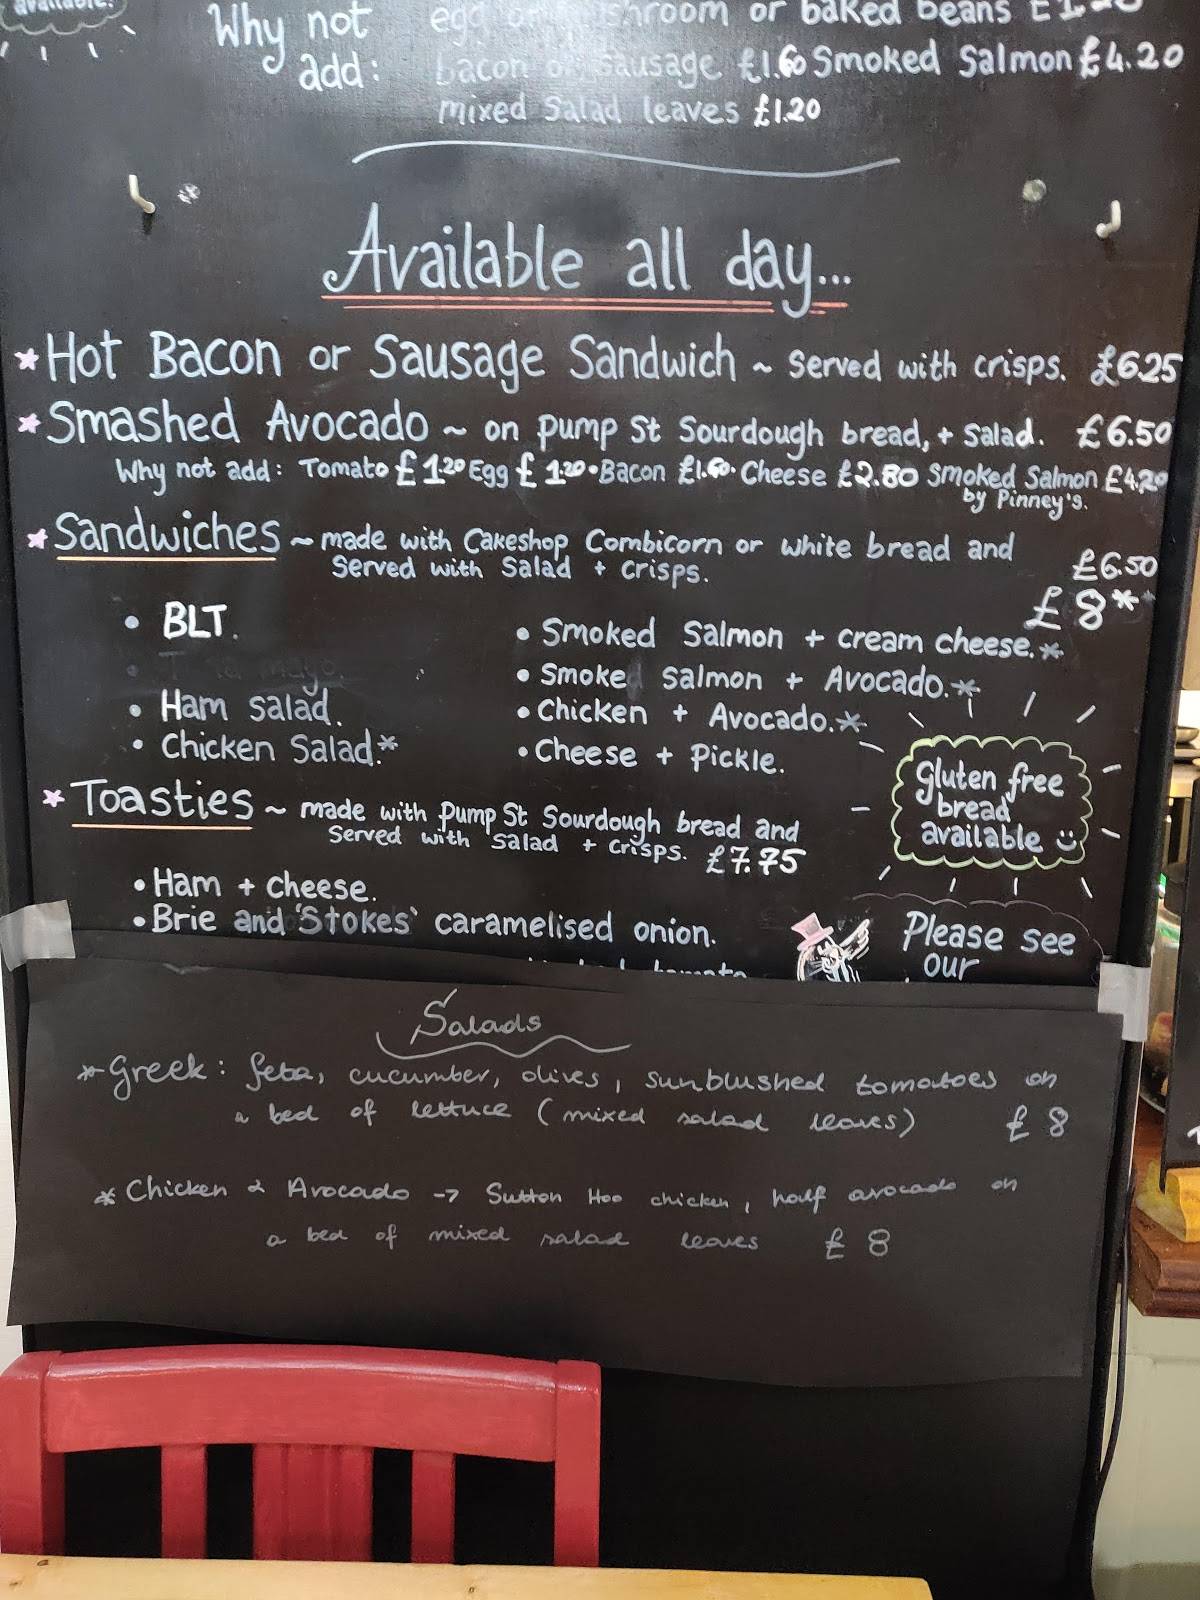 available!
Why not egg or mushroom or baked beans
add: bacon or sausage £1.60 Smoked Salmon £4.20
mixed Salad leaves £1.20
Available all day...
* Hot Bacon or Sausage Sandwich ~ Served with crisps. £6.25
* Smashed Avocado ~ on Pump St Sourdough bread, + Salad. £6.50
Why not add: Tomato £1.20 Egg £1.20 • Bacon £1.60 • Cheese £2.80 Smoked Salmon £4.20
by Pinney's.
* Sandwiches ~ made with Cakeshop Combicorn or white bread and
Served with Salad + crisps. £6.50
£8**
• BLT.
• Smoked Salmon + cream cheese.*
• Smoke Salmon + Avocado.*
• Ham Salad.
• Chicken + Avocado.*
• Chicken Salad.*
• Cheese + Pickle.
Gluten free
bread
available
* Toasties ~ made with Pump St Sourdough bread and
Served with Salad + crisps. £7.75
• Ham + cheese.
• Brie and 'Stokes' caramelised onion.
Please see
our
Salads
* Greek: feta, cucumber, olives, sunblushed tomatoes on
a bed of lettuce (mixed salad leaves) £8
* Chicken & Avocado → Sutton Hoo chicken, half avocado on
a bed of mixed salad leaves £8